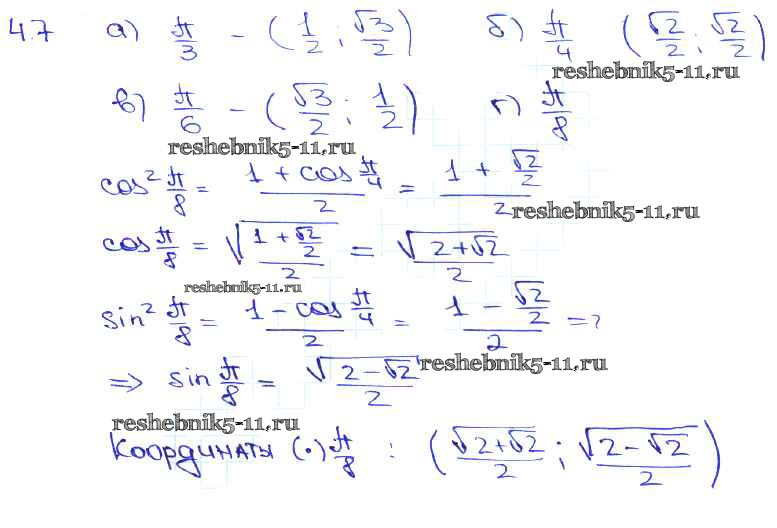 4.7 а) π/3 - (1/2 ; √3/2) б) π/4 (√2/2 ; √2/2)
reshebnik5-11.ru
в) π/6 - (√3/2 ; 1/2) г) π/8
reshebnik5-11.ru
cos² π/8 = (1 + cos π/4)/2 = (1 + √2/2)/2
reshebnik5-11.ru
cos π/8 = √((1 + √2/2)/2) = √(2+√2)/2
reshebnik5-11.ru
sin² π/8 = (1 - cos π/4)/2 = (1 - √2/2)/2 =>
=> sin π/8 = √(2-√2)/2
reshebnik5-11.ru
reshebnik5-11.ru
Координаты (·) π/8 : (√(2+√2)/2 ; √(2-√2)/2)